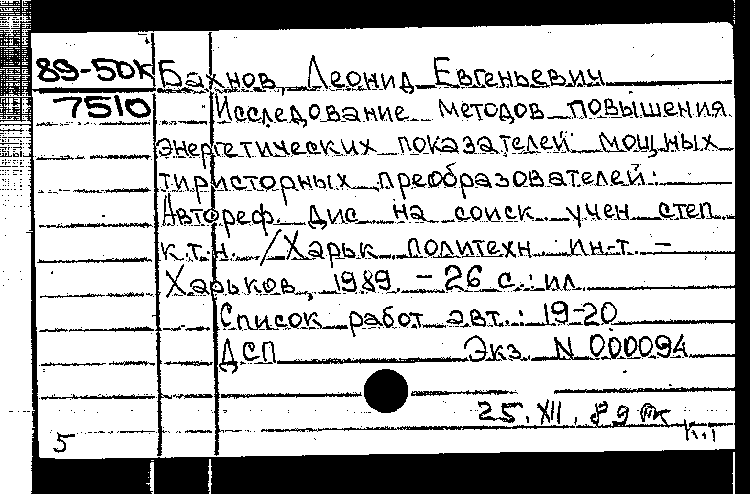 89-50К Бахнов, Леонид Евгеньевич
7510 Исследование методов повышения
энергетических показателей мощных
тиристорных преобразователей:
Автореф. дис на соиск учен степ
к.т.н. /Харьк политехн ин-т. –
Харьков, 1989. – 26 с.: ил
Список работ авт.: 19-20
ДСП Экз N 000094
25.XII.89
5